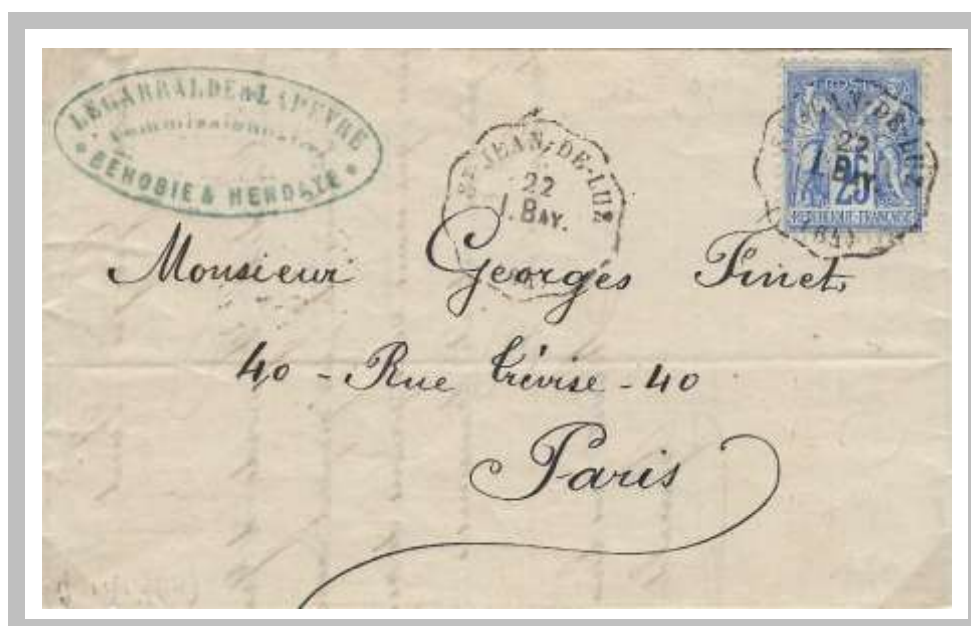 LEGARRALDE & LAPEYRE
Commissionnaires
BEHOBIE & HENDAYE
ST JEAN-DE-LUZ
22
I. BAY.
JEAN-DE-LUZ
22
I. B
25
REPUBLIQUE FRANCAISE
(64)
Monsieur Georges Finet
40 - Rue Trévise - 40
Paris